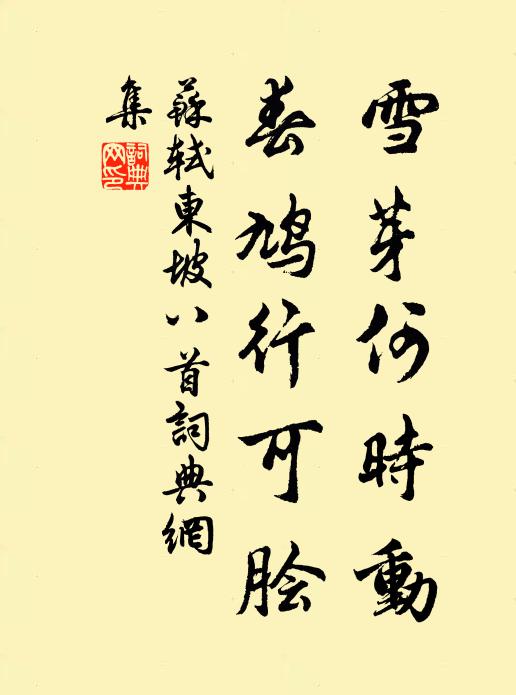 雪芽何時動
春鳩行可脍
蘇軾東坡八首詞典網
集
詞典
网印